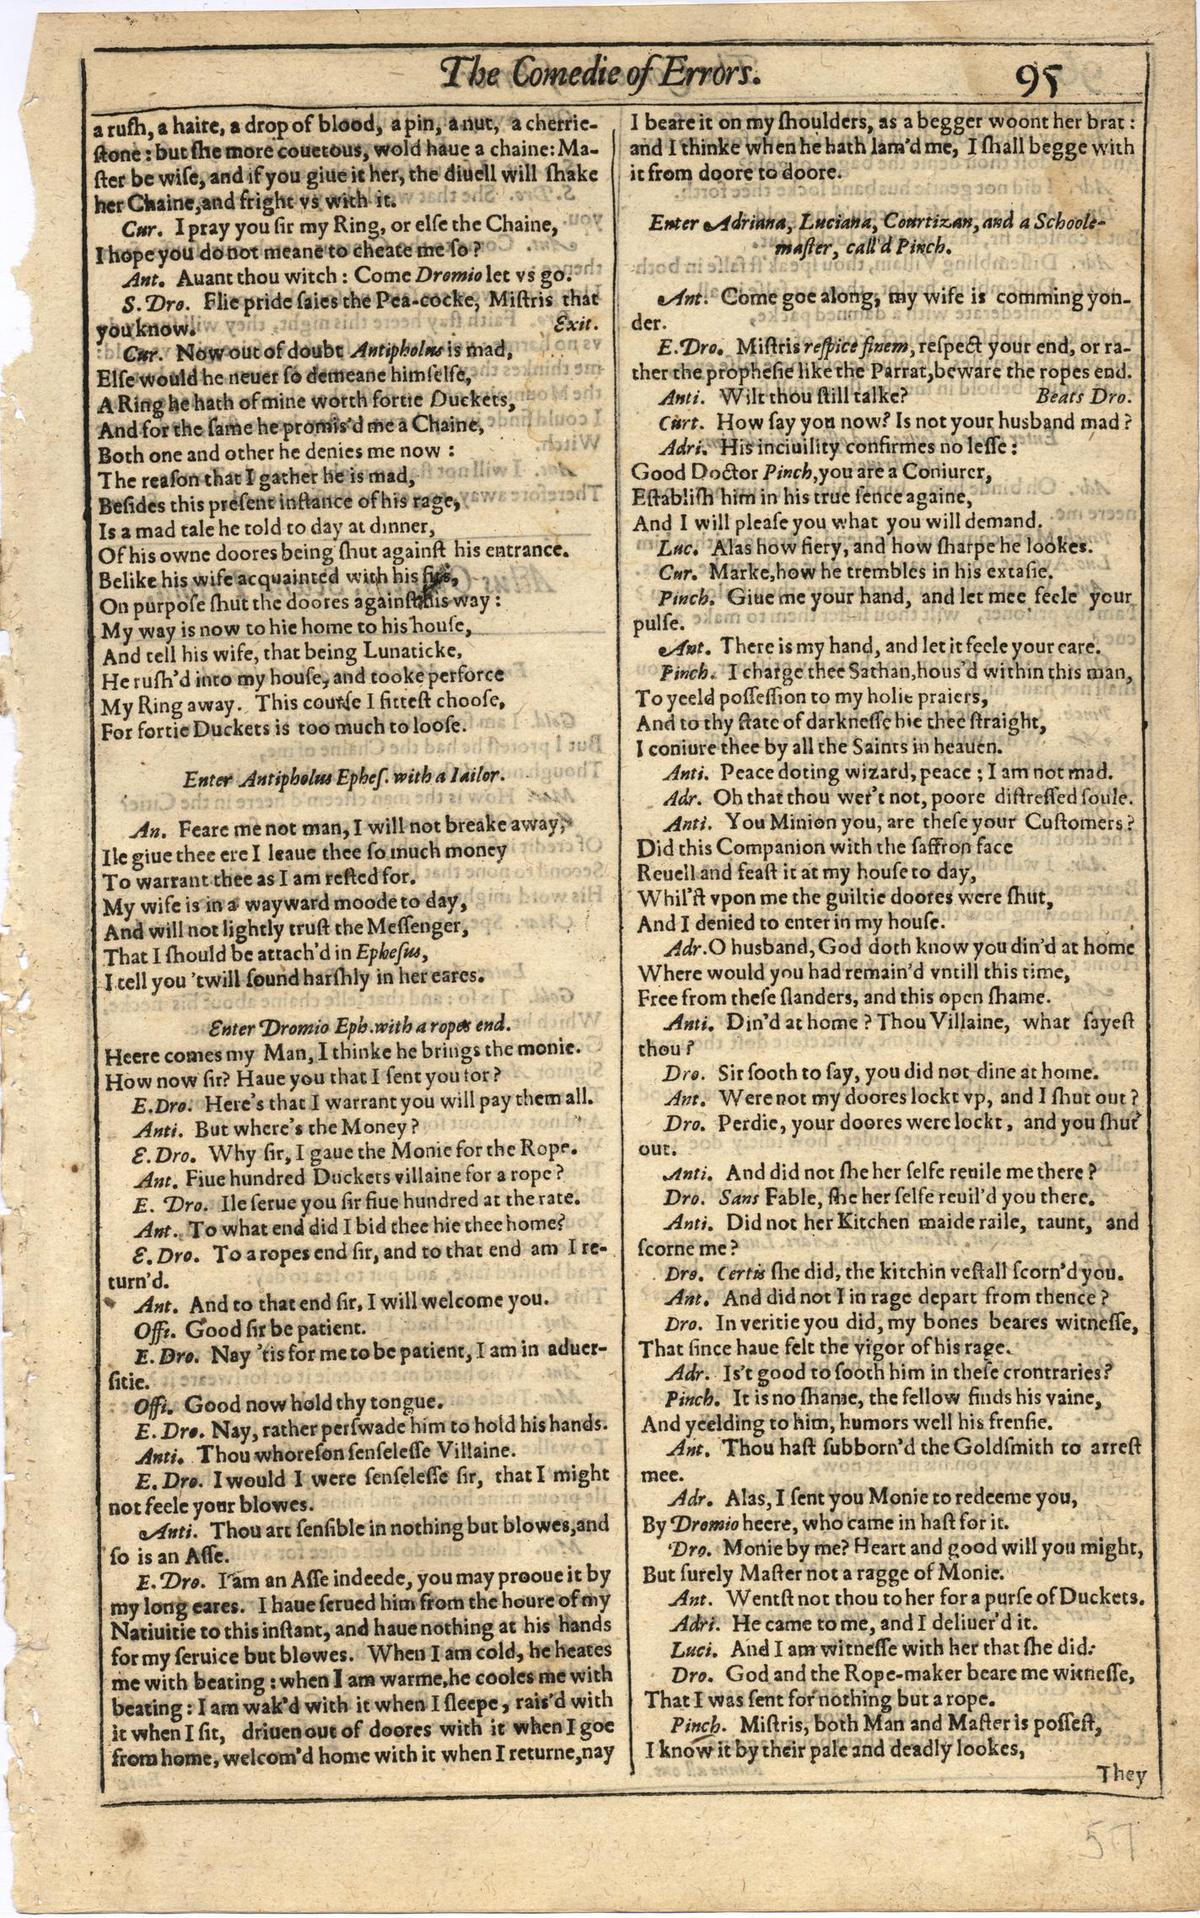 The Comedie of Errors. 95
a rush, a haire, a drop of blood, a pin, a nut, a cherrie-
stone: but she more couetous, wold haue a chaine: Ma-
ster be wise, and if you giue it her, the diuell will shake
her Chaine, and fright vs with it.
Cur. I pray you sir my Ring, or else the Chaine,
I hope you do not meane to cheate me so?
Ant. Auant thou witch: Come Dromio let vs go.
S. Dro. Flie pride saies the Pea-cocke, Mistris that
you know. Exit.
Cur. Now out of doubt Antipholus is mad,
Else would he neuer so demeane himselfe,
A Ring he hath of mine worth fortie Duckets,
And for the same he promis'd me a Chaine,
Both one and other he denies me now:
The reason that I gather he is mad,
Besides this present instance of his rage,
Is a mad tale he told to day at dinner,
Of his owne doores being shut against his entrance.
Belike his wife acquainted with his fits,
On purpose shut the doores against his way:
My way is now to hie home to his house,
And tell his wife, that being Lunaticke,
He rush'd into my house, and tooke perforce
My Ring away. This course I fittest choose,
For fortie Duckets is too much to loose.
Enter Antipholus Ephes. with a Iailor.
An. Feare me not man, I will not breake away,
Ile giue thee ere I leaue thee so much money
To warrant thee as I am rested for.
My wife is in a wayward moode to day,
And will not lightly trust the Messenger,
That I should be attach'd in Ephesus,
I tell you 'twill sound harshly in her eares.
Enter Dromio Eph. with a ropes end.
Heere comes my Man, I thinke he brings the monie.
How now sir? Haue you that I sent you for?
E.Dro. Here's that I warrant you will pay them all.
Anti. But where's the Money?
E.Dro. Why sir, I gaue the Monie for the Rope.
Ant. Fiue hundred Duckets villaine for a rope?
E. Dro. Ile serue you sir fiue hundred at the rate.
Ant. To what end did I bid thee hie thee home?
E.Dro. To a ropes end sir, and to that end am I re-
turn'd.
Ant. And to that end sir, I will welcome you.
Offi. Good sir be patient.
E.Dro. Nay 'tis for me to be patient, I am in aduer-
sitie.
Offi. Good now hold thy tongue.
E.Dro. Nay, rather perswade him to hold his hands.
Anti. Thou whoreson senselesse Villaine.
E.Dro. I would I were senselesse sir, that I might
not feele your blowes.
Anti. Thou art sensible in nothing but blowes, and
so is an Asse.
E.Dro. I am an Asse indeede, you may prooue it by
my long eares. I haue serued him from the houre of my
Natiuitie to this instant, and haue nothing at his hands
for my seruice but blowes. When I am cold, he heates
me with beating: when I am warme, he cooles me with
beating: I am wak'd with it when I sleepe, rais'd with
it when I sit, driuen out of doores with it when I goe
from home, welcom'd home with it when I returne, nay
I beare it on my shoulders, as a begger woont her brat:
and I thinke when he hath lam'd me, I shall begge with
it from doore to doore.
Enter Adriana, Luciana, Courtizan, and a Schoole-
master, call'd Pinch.
Ant. Come goe along, my wife is comming yon-
der.
E.Dro. Mistris respice finem, respect your end, or ra-
ther the prophesie like the Parrat, beware the ropes end.
Anti. Wilt thou still talke? Beats Dro.
Curt. How say you now? Is not your husband mad?
Adri. His inciuility confirmes no lesse:
Good Doctor Pinch, you are a Coniurer,
Establish him in his true sence againe,
And I will please you what you will demand.
Luc. Alas how fiery, and how sharpe he lookes.
Cur. Marke, how he trembles in his extasie.
Pinch. Giue me your hand, and let mee feele your
pulse.
Ant. There is my hand, and let it feele your eare.
Pinch. I charge thee Sathan, hous'd within this man,
To yeeld possession to my holie praiers,
And to thy state of darknesse hie thee straight,
I coniure thee by all the Saints in heauen.
Anti. Peace doting wizard, peace; I am not mad.
Adr. Oh that thou wer't not, poore distressed soule.
Anti. You Minion you, are these your Customers?
Did this Companion with the saffron face
Reuell and feast it at my house to day,
Whil'st vpon me the guiltie doores were shut,
And I denied to enter in my house.
Adr. O husband, God doth know you din'd at home
Where would you had remain'd vntill this time,
Free from these slanders, and this open shame.
Anti. Din'd at home? Thou Villaine, what sayest
thou?
Dro. Sir sooth to say, you did not dine at home.
Ant. Were not my doores lockt vp, and I shut out?
Dro. Perdie, your doores were lockt, and you shut
out.
Anti. And did not she her selfe reuile me there?
Dro. Sans Fable, she her selfe reuil'd you there.
Anti. Did not her Kitchen maide raile, taunt, and
scorne me?
Dro. Certis she did, the kitchin vestall scorn'd you.
Ant. And did not I in rage depart from thence?
Dro. In veritie you did, my bones beares witnesse,
That since haue felt the vigor of his rage.
Adr. Is't good to sooth him in these crontraries?
Pinch. It is no shame, the fellow finds his vaine,
And yeelding to him, humors well his frensie.
Ant. Thou hast subborn'd the Goldsmith to arrest
mee.
Adr. Alas, I sent you Monie to redeeme you,
By Dromio heere, who came in hast for it.
Dro. Monie by me? Heart and good will you might,
But surely Master not a ragge of Monie.
Ant. Wentst not thou to her for a purse of Duckets.
Adri. He came to me, and I deliuer'd it.
Luci. And I am witnesse with her that she did:
Dro. God and the Rope-maker beare me witnesse,
That I was sent for nothing but a rope.
Pinch. Mistris, both Man and Master is possest,
I know it by their pale and deadly lookes,
They